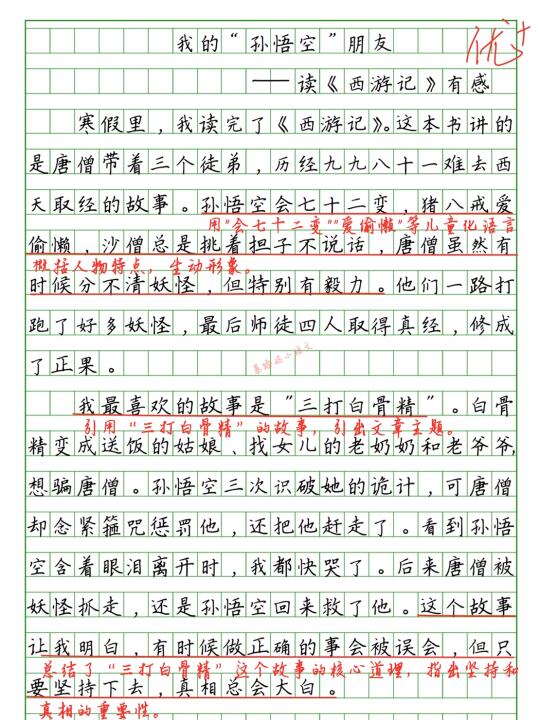 我的“孙悟空”朋友
优+
——读《西游记》有感
寒假里，我读完了《西游记》。这本书讲的
是唐僧带着三个徒弟，历经九九八十一难去西
天取经的故事。孙悟空会七十二变，猪八戒爱
用"会七十二变""爱偷懒"等儿童化语言
偷懒，沙僧总是挑着担子不说话，唐僧虽然有
概括人物特点，生动形象。
时候分不清妖怪，但特别有毅力。他们一路打
跑了好多妖怪，最后师徒四人取得真经，修成
了正果。
我最喜欢的故事是“三打白骨精”。白骨
引用“三打白骨精”的故事，引出文章主题。
精变成送饭的姑娘、找女儿的老奶奶和老爷爷，
想骗唐僧。孙悟空三次识破她的诡计，可唐僧
却念紧箍咒惩罚他，还把他赶走了。看到孙悟
空含着眼泪离开时，我都快哭了。后来唐僧被
妖怪抓走，还是孙悟空回来救了他。这个故事
让我明白，有时候做正确的事会被误会，但只
总结了“三打白骨精”这个故事的核心道理，指出坚持和
要坚持下去，真相总会大白。
真相的重要性。